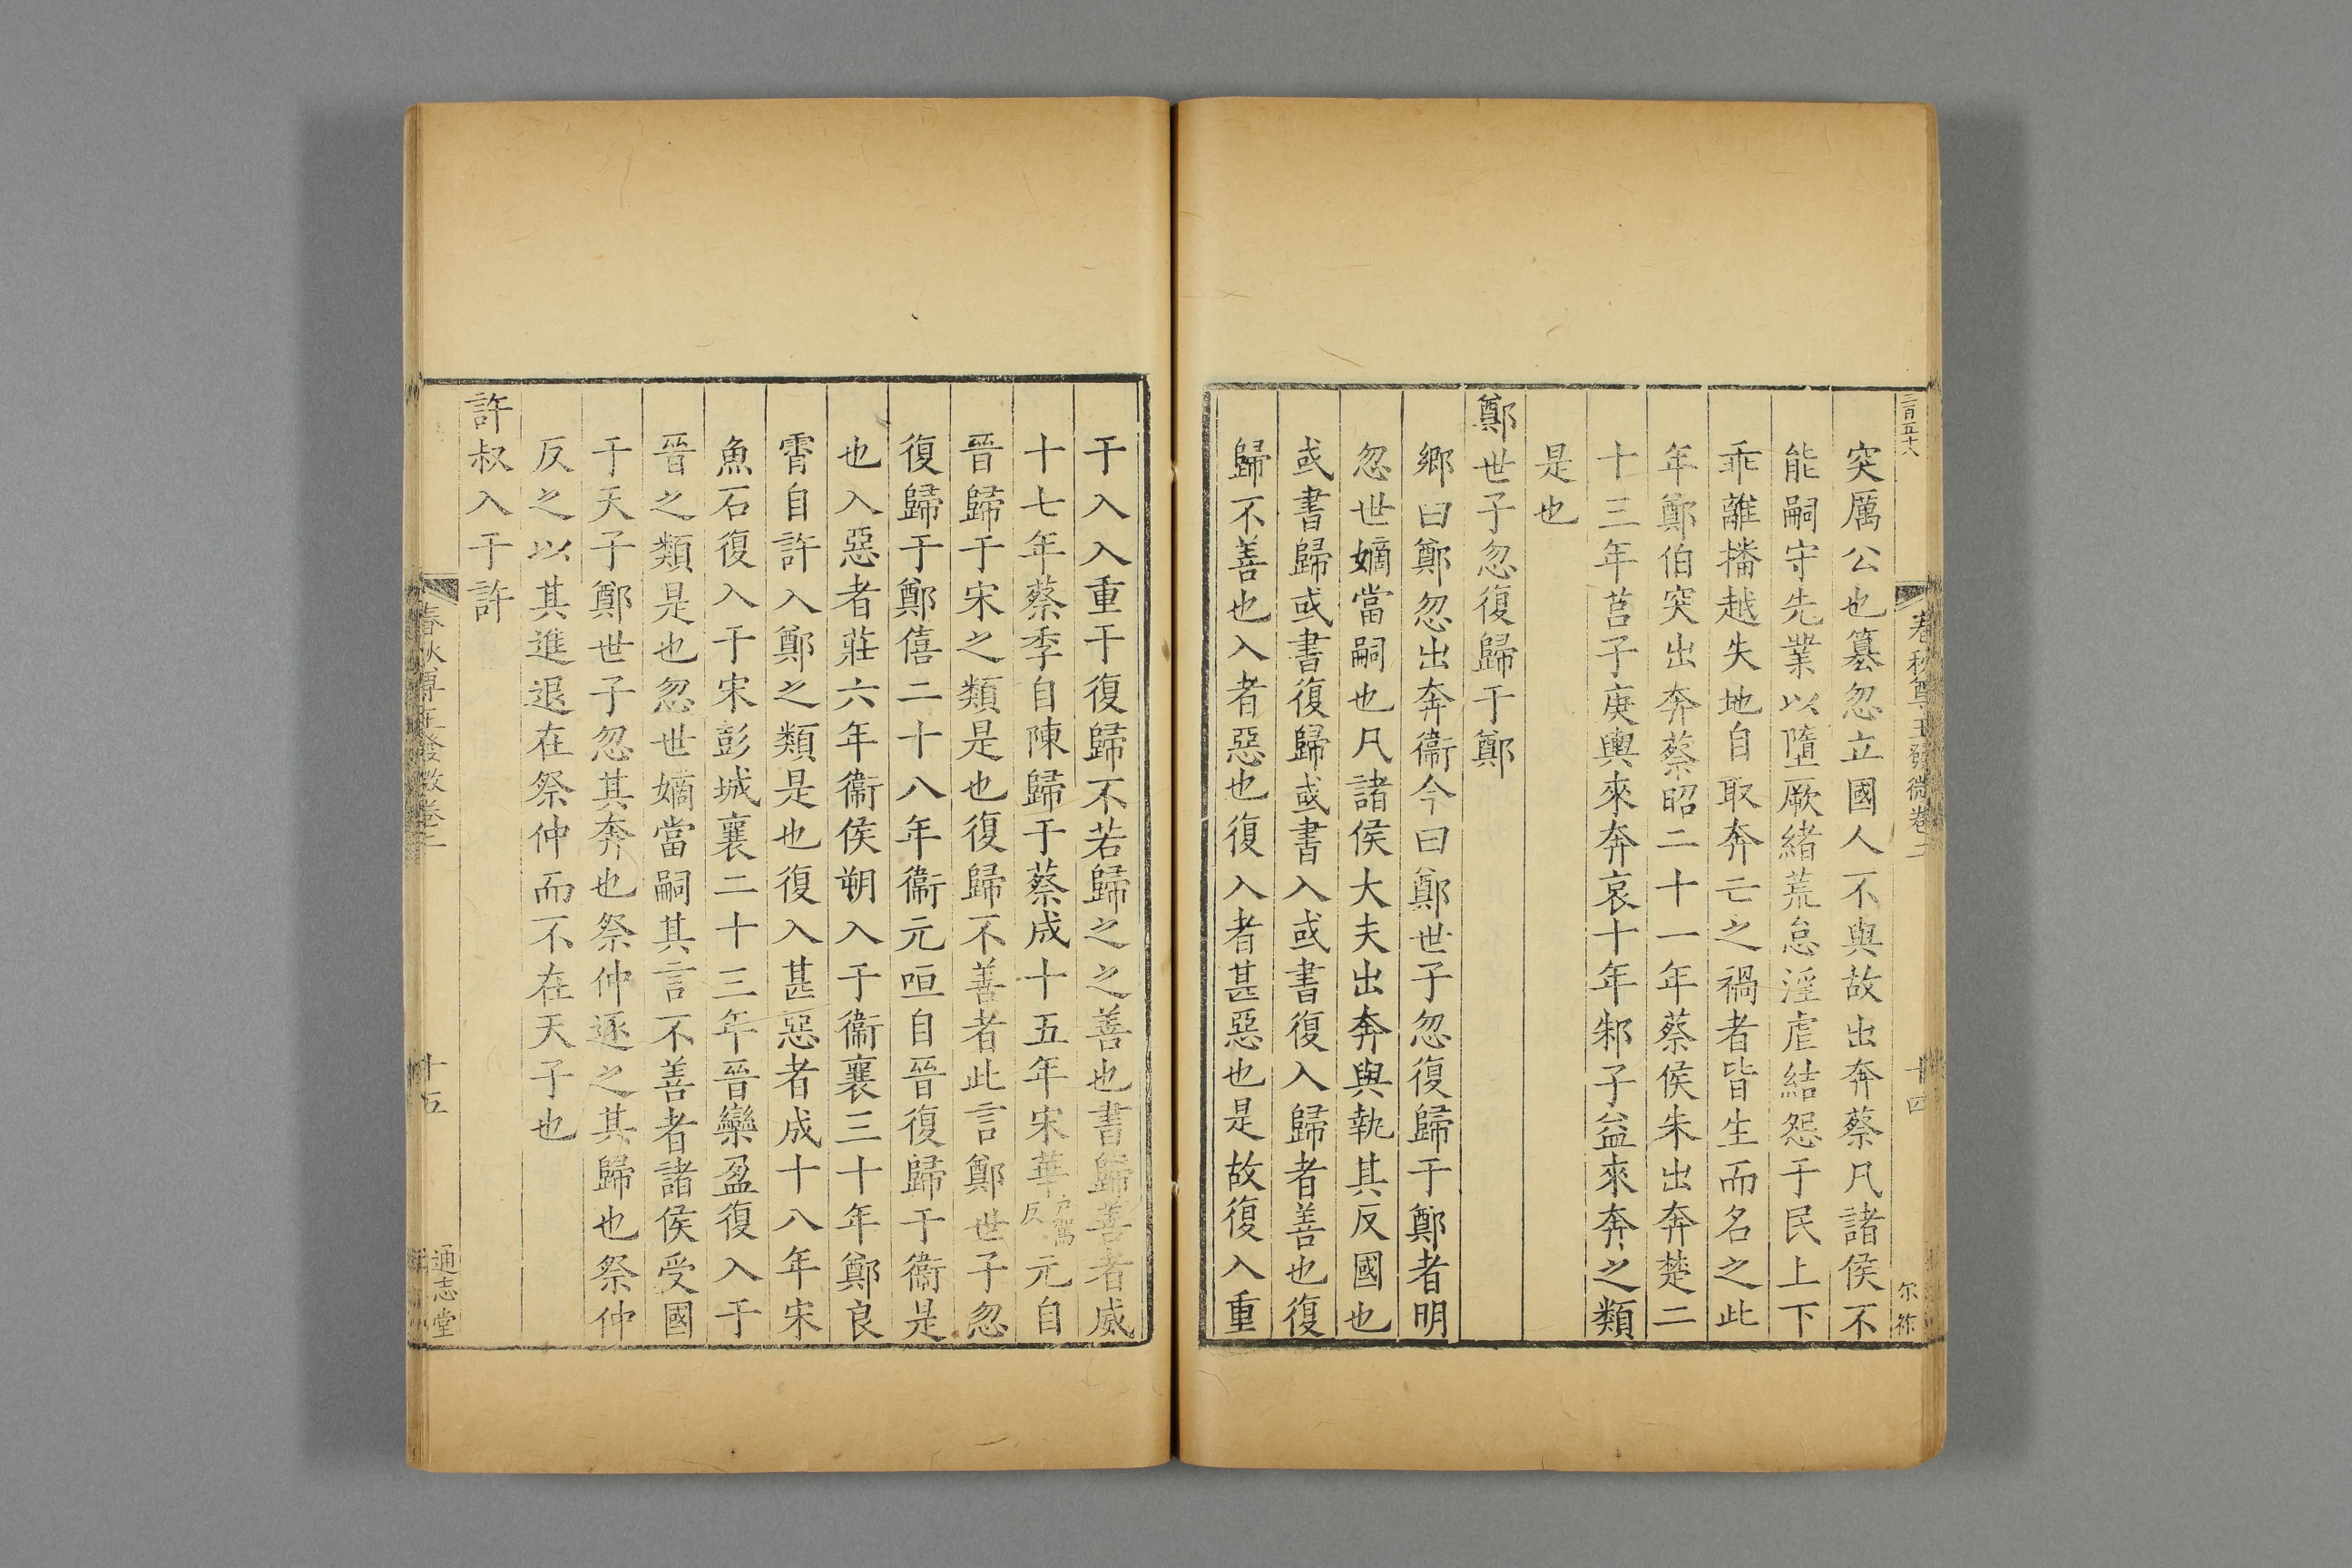 三百五十八
春秋尊王發微卷二
十四
尔祚
突厲公也簒忽立國人不與故出奔蔡凡諸侯不
能嗣守先業以墮厥緒荒怠淫虐結怨于民上下
乖離播越失地自取奔亡之禍者皆生而名之此
年鄭伯突出奔蔡昭二十一年蔡侯朱出奔楚二
十三年莒子庚輿來奔哀十年邾子益來奔之類
是也
鄭世子忽復歸于鄭
鄉曰鄭忽出奔衞今曰鄭世子忽復歸于鄭者明
忽世嫡當嗣也凡諸侯大夫出奔與執其反國也
或書歸或書復歸或書入或書復入歸者善也復
歸不善也入者惡也復入者甚惡也是故復入重
于入入重于復歸不若歸之之善也書歸善者威
十七年蔡季自陳歸于蔡成十五年宋華戸駕反元自
晉歸于宋之類是也復歸不善者此言鄭世子忽
復歸于鄭僖二十八年衞元咺自晉復歸于衞是
也入惡者莊六年衞侯朔入于衞襄三十年鄭良
霄自許入鄭之類是也復入甚惡者成十八年宋
魚石復入于宋彭城襄二十三年晉欒盈復入于
晉之類是也忽世嫡當嗣其言不善者諸侯受國
于天子鄭世子忽其奔也祭仲逐之其歸也祭仲
反之以其進退在祭仲而不在天子也
許叔入于許
春秋尊王發微卷二
十五
通志堂